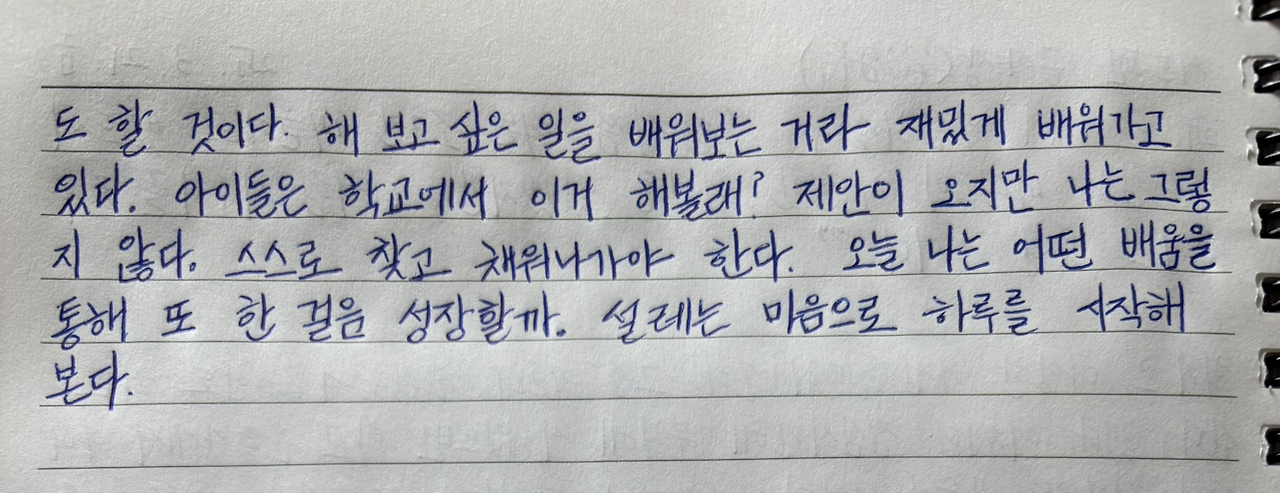 도 할 것이다. 해 보고 싶은 일을 배워보는 거라 재밌게 배워가고
있다. 아이들은 학교에서 이거 해볼래? 제안이 오지만 나는 그렇
지 않다. 스스로 찾고 채워나가야 한다. 오늘 나는 어떤 배움을
통해 또 한 걸음 성장할까. 설레는 마음으로 하루를 시작해
본다.